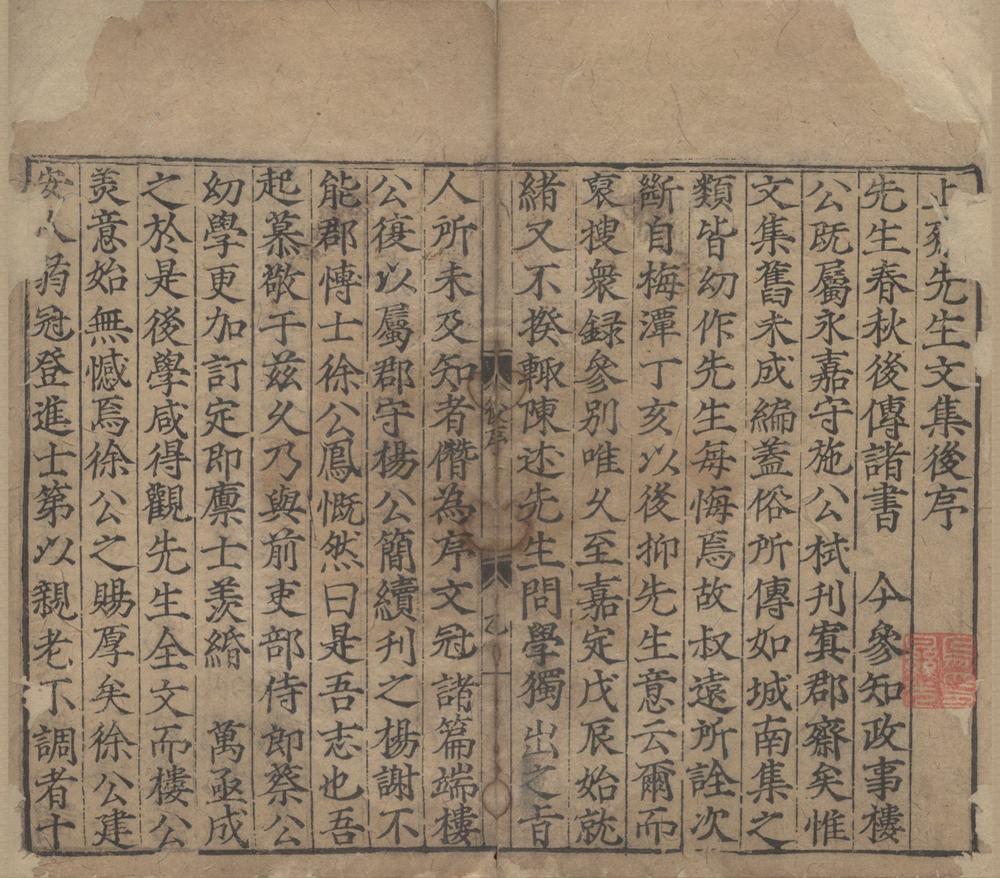 止齋先生文集後序
先生春秋後傳諸書 今參知政事樓
公旣屬永嘉守施公栻刊寘郡齋矣惟
文集舊未成編蓋俗所傳如城南集之
類皆幼作先生每悔焉故叔遠所詮次
斷自梅潭丁亥以後抑先生意云爾而
裒搜衆録參別唯久至嘉定戊辰始就
緒又不揆輙陳述先生問學獨出之旨
後序
一
人所未及知者僭為序文冠諸篇端樓
公復以屬郡守楊公簡續刊之楊謝不
能郡博士徐公鳳慨然曰是吾志也吾
起慕敬于兹乆乃與前吏部侍郎蔡公
幼學更加訂定即廪士羨緡 萬亟成
之於是後學咸得觀先生全文而樓公
羙意始無憾焉徐公之賜厚矣徐公建
安人弱冠登進士第以親老下調者十